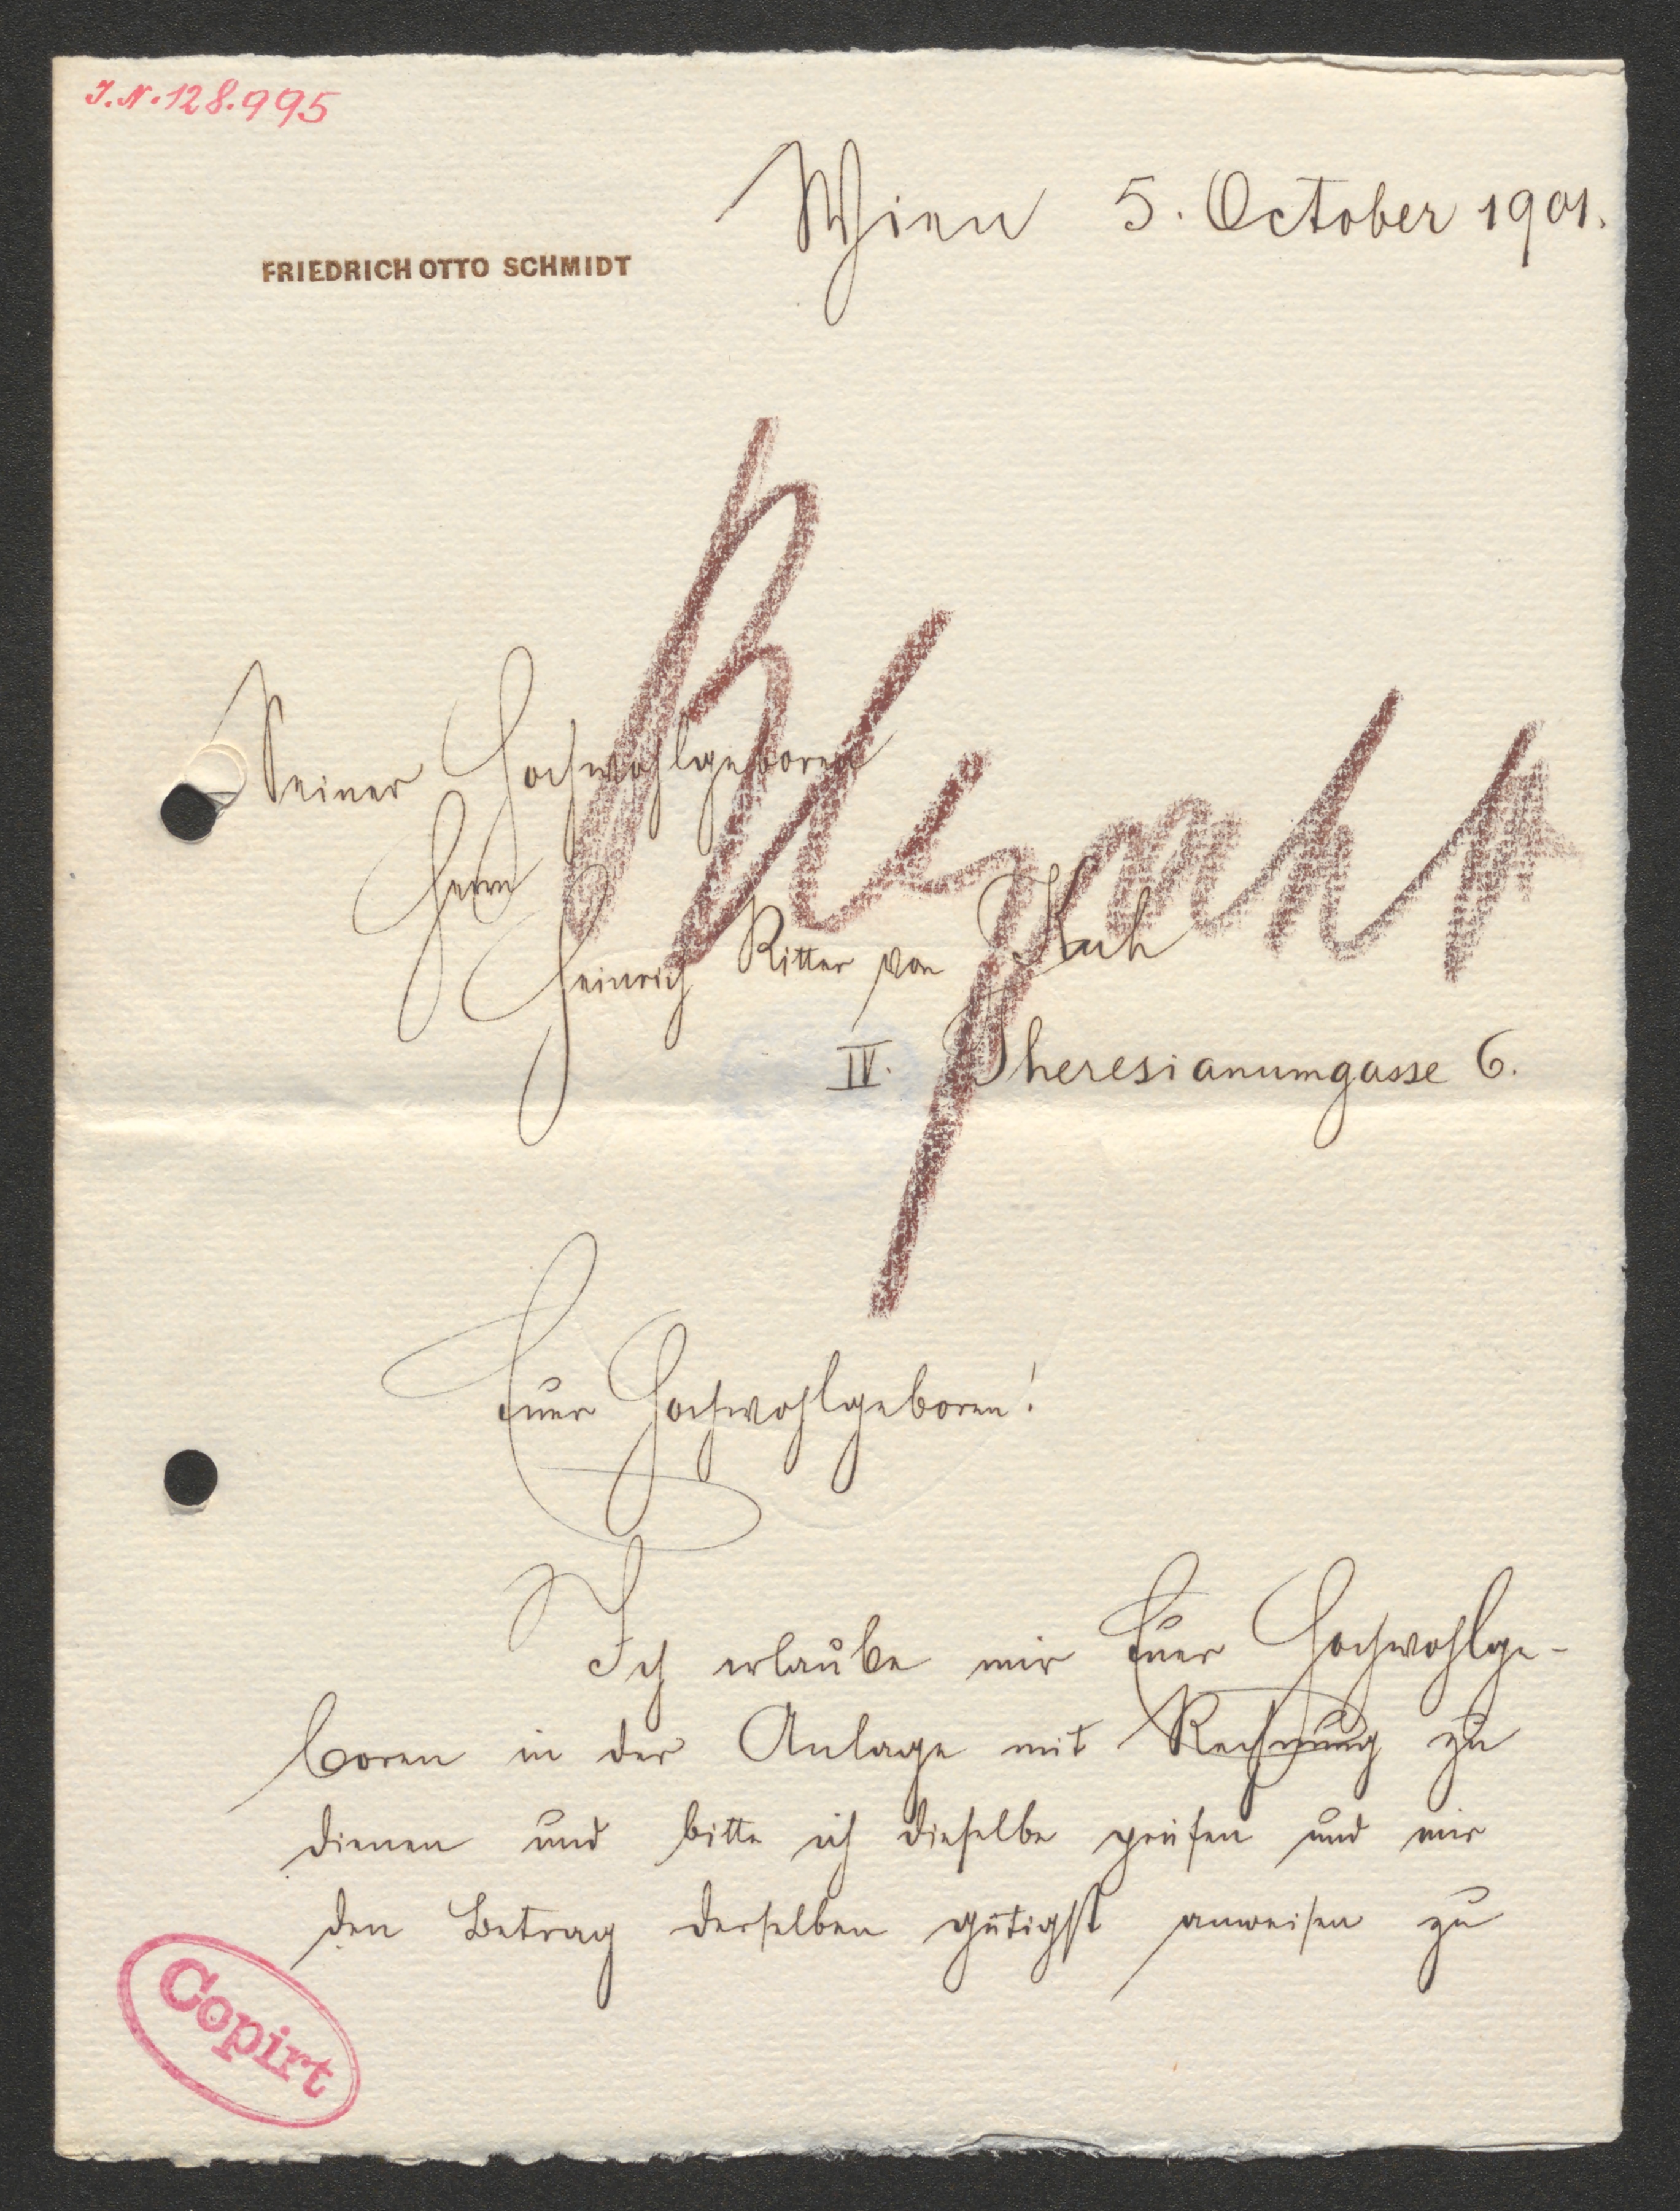 J.N. 128.995
Wien 5. October 1901.
FRIEDRICH OTTO SCHMIDT
Seiner Hochwohlgeboren
Herrn
Heinrich Ritter von
IV. Theresianumgasse 6.
Euer Hochwohlgeboren!
Ich erlaube mir Euer Hochwohlge-
boren in der Anlage mit Rechnung zu
dienen und bitte ich dieselbe prüfen und mir
den Betrag derselben gütigst anweisen zu
Copirt